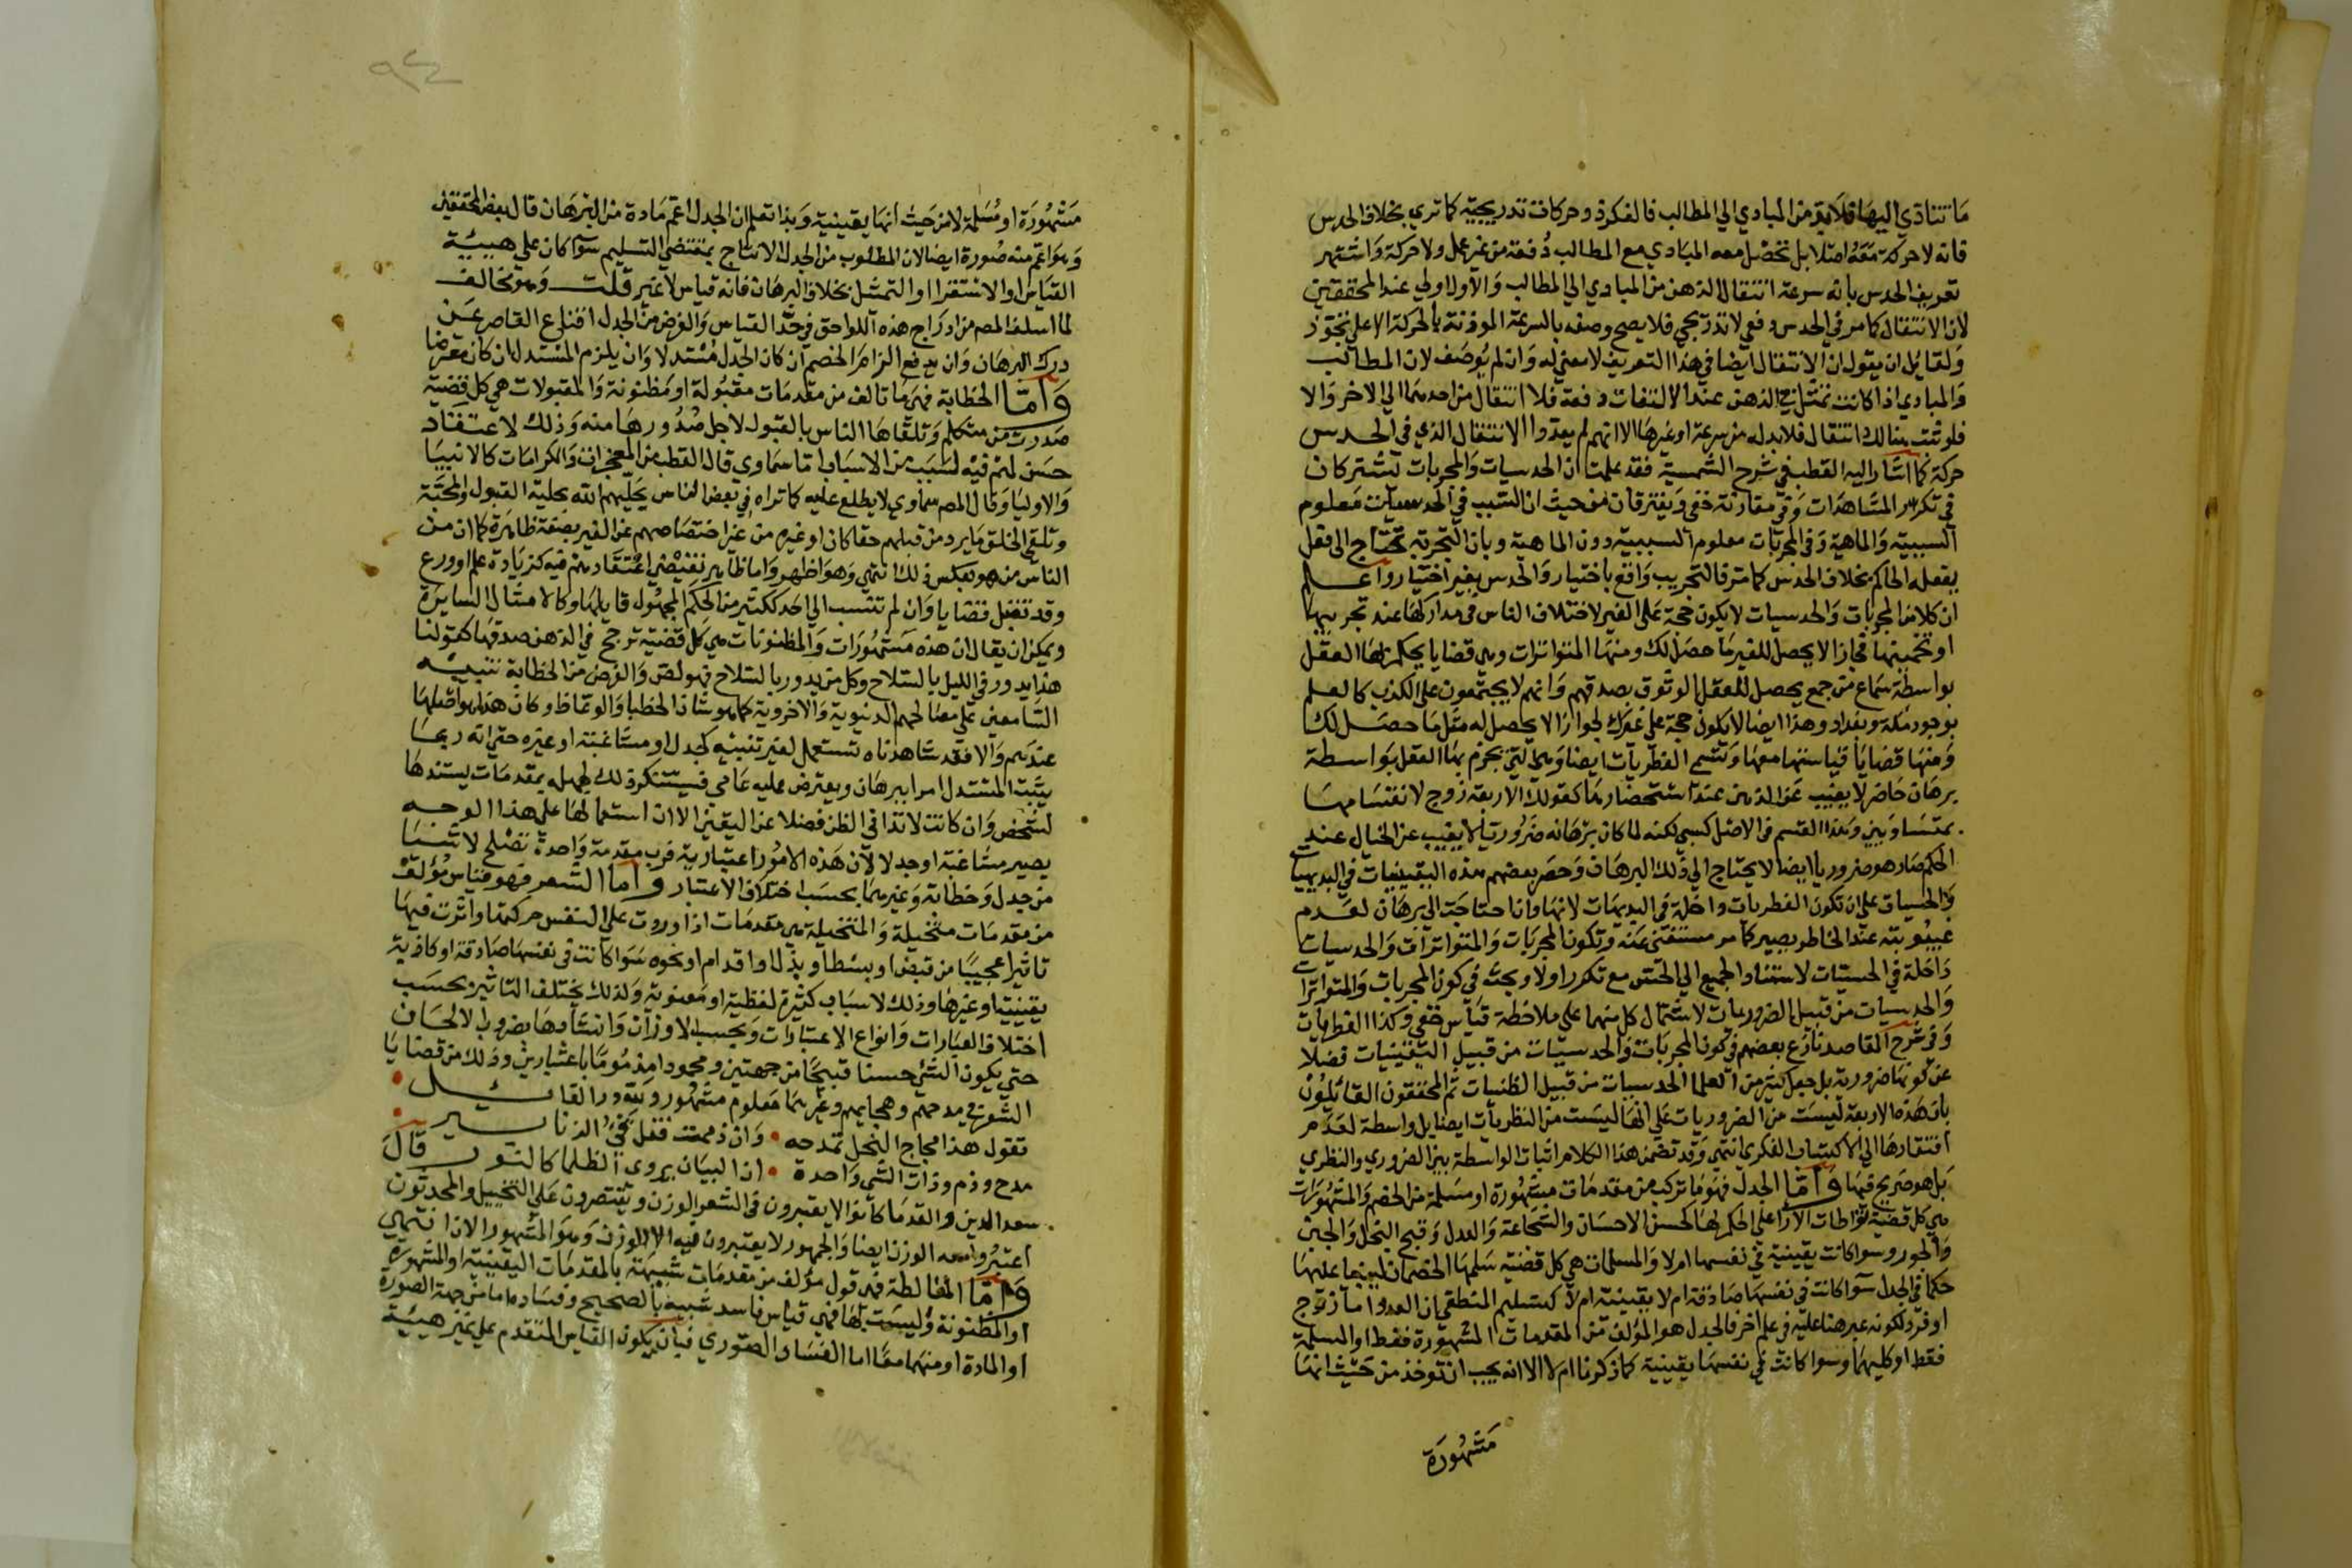 ما تتنادي اليها فلابد من المبادي الي المطالب فالفكرة وحركات تدريجية كما تري بخلاف الحدس
فانه لا حركة معه اصلا بل تحصل معه المبادي مع المطالب دفعة من غير عمل ولا حركة واشتهر
تعريف الحدس بانه سرعة انتقال الذهن من المبادي الي المطالب والاول اولي عند المحققين
لان الانتقال كما مر في الحدس دفعي لا تدريجي فلا يصح وصفه بالسرعة الموذنة بالحركة الا علي تجوز
ولقايل ان يقول ان الانتقال ايضا في هذا التعريف لا معني له وان لم يوصف لان المطالب
والمبادي اذا كانت تمثل في الذهن عند الالتفات دفعة فلا انتقال من احدهما الي الاخر والا
فلو ثبت هنالك انتقال فلابد له من سرعة او غيرها الا انهم لم يعدوا الانتقال الذي في الحدس
حركة كما اشار اليه القطب في شرح الشمسية فقد علمت ان الحدسيات والمجربات تشتركان
في تكرر المشاهدات وفي مقارنة خفي ويفترقان من حيث ان السبب في الحدسيات معلوم
السببية والماهية وفي المجربات معلوم السببية دون الماهية وبان التجربة تحتاج الي فعل
يفعله الحاكم بخلاف الحدس كما مر فالتجريب واقع باختيار والحدس بغير اختيار واعلم
ان كلا من المجربات والحدسيات لا يكون حجة علي الغير لاختلاف الناس في مداركها عند تجريبها
او تخمينها فجاز الا يحصل للغير ما حصل لك ومنها المتواترات وهي قضايا يحكم بها العقل
بواسطة سماع من جمع يحصل للعقل الوثوق بصدقهم وانهم لا يجتمعون علي الكذب كالعلم
بوجود مكة وبغداد وهذا ايضا لا يكون حجة علي غيرك لجواز الا يحصل له مثل ما حصل لك
ومنها قضايا قياساتها معها وتسمي الفطريات ايضا وهي التي يجزم بها العقل بواسطة
برهان حاضر لا يغيب عن الذهن عند استحضارها كقولك الاربعة زوج لانقسامها
بمتساويين وهذا القسم في الاصل كسبي لكنه لما كان برهانه ضروريا لا يغيب عن الخيال عند
الحكم صار هو ضروريا ايضا لا يحتاج الي ذلك البرهان وحصر بعضهم هذه اليقينيات في البديهيات
والحسيات علي ان تكون الفطريات داخلة في البديهات لانها وان احتاجت الي برهان لعدم
غيبوبته عند الخاطر يصير كامر مستغني عنه وتكون المجربات والمتواترات والحدسيات
داخلة في الحسيات لاستناد الجميع الي الحس مع تكرر اولا وبحث في كون المجربات والمتواترات
والحدسيات من قبيل الضروريات لاشتمال كل منهما علي ملاحظة قياس خفي وكذا الفطريات
وفي شرح المقاصد نازع بعضهم في كون المجربات والحدسيات من قبيل اليقينيات فضلا
عن كونها ضرورية بل جعل كثير من العلما الحدسيات من قبيل الظنيات ثم المحققون القائلون
بان هذه الاربعة ليست من الضروريات علي انها ليست من النظريات ايضا بل واسطة لعدم
افتقارها الي الاكتساب الفكري انتهي وقد تضمن هذا الكلام اثبات الواسطة بين الضروري والنظري
بل هو صريح فيها واما الجدل فهو ما تركب من مقدمات مشهورة او مسلمة من الخصم والمشهورات
هي كل قضية تواطات الارا علي الحكم بها كحسن الاحسان والشجاعة والعدل وقبح البخل والجبن
والجور وسوا كانت يقينية في نفسها ام لا والمسلمات هي كل قضية سلمها الخصمان ليبنيا عليها
حكما في الجدل سوا كانت في نفسها صادقة ام لا يقينية ام لا كتسليم المنطقي ان العدد اما زوج
او فرد لكونه مبرهنا عليه في علم اخر فالجدل هو المولف من المقدمات المشهورة فقط او المسلمة
فقط او كليهما وسوا كانت في نفسها يقينية كما ذكرنا ام لا الا انه يجب ان توخذ من حيث انها
مشهورة
٩٢٤
مشهورة او مسلمة لا من حيث انها يقينية وبذا تعلم ان الجدل اعم مادة من البرهان قال بعض المحققين
وهو اعم منه صورة ايضا لان المطلوب من الجدل الانتاج بمقتضي التسليم سوا كان علي هيية
القياس او الاستقرا او التمثل بخلاف البرهان فانه قياس لا غير قلت وهو مخالف
لما اسلف المص من ادراج هذه اللواحق في حد القياس والغرض من الجدل اقناع القاصر عن
درك البرهان وان يدفع الزام الخصم ان كان الجدل مستدلا وان يلزم المستدل ان كان معترضا
واما الخطابة فهي ما تالف من مقدمات مقبولة او مظنونة والمقبولات هي كل قضية
صدرت من متكلم وتلقاها الناس بالقبول لاجل صدورها منه وذلك لاعتقاد
حسن لهم فيه لسبب من الاسباب اما سماوي قال القطب من المعجزات والكرامات كالانبيا
والاوليا وقال المص سماوي لا يطلع عليه كما تراه في بعض الناس يحليهم الله بحلية القبول والمحبة
وتلقي الخلق ما يرد من قبلهم حقا كان او غيره من غير اختصاصهم عن الغير بصفة ظاهرة كما ان من
الناس من هو بعكس ذلك انتهي وهو اظهر واما ظاهر يقتضي اعتقادهم فيه كزيادة علم او ورع
وقد تقبل قضايا وان لم تنسب الي احد ككثير من الحكم المجهول قايلها وكالامثال السايرة
ويمكن ان يقال ان هذه مشهورات والمظنونات هي كل قضية ترجح في الذهن صدقها كقولنا
هذا يدور في الليل بالسلاح وكل من يدور بالسلاح فهو لص والغرض من الخطابة تنبيه
السامعين علي مصالحهم الدنيوية والاخروية كما هو شان الخطبا والوعاظ وكان هذا هو اصلها
عندهم والا فقد شاهدناه تستعمل لغير تنبيه كجدل او مشاغبة او غيره حتي انه ربما
يثبت المستدل امرا ببرهان ويعترض عليه عامي فيستنكر ذلك لجهله بمقدمات يسندها
لشخص وان كانت لا تذا في الظن فضلا عن اليقين الا ان استعمالها علي هذا الوجه
يصير مشاغبة او جدلا لان هذه الامور اعتبارية فرب مقدمة واحدة تصلح لاشيا
من جدل وخطابة وغيرهما بحسب اختلاف الاعتبار واما الشعر فهو قياس مؤلف
من مقدمات متخيلة والمتخيلة هي مقدمات اذا وردت علي النفس حركتها واثرت فيها
تاثيرا عجيبا من قبض او بسط او بذل او اقدام او نحوه سوا كانت في نفسها صادقة او كاذبة
يقينية او غيرها وذلك لاسباب كثيرة لفظية او معنوية ولذلك يختلف التاثير بحسب
اختلاف العبارات وانواع الاعتبارات وبحسب الاوزان وانشادها بضروب الالحان
حتي يكون الشي حسنا قبيحا من جهتين ومحمودا مذموما باعتبارين وذلك من قضايا
الشعر في مدحهم وهجايهم وغيرهما معلوم مشهور ولله در القايل
تقول هذا مجاج النحل تمدحه • وان ذممت فقل قيء الزنابير
مدح وذم وذات الشي واحدة • ان البيان يروي الظلما كالنور قال
سعد الدين والقدما كانوا لا يعتبرون في الشعر الوزن ويقتصرون علي التخييل والمحدثون
اعتبروا معه الوزن ايضا والجمهور لا يعتبرون فيه الا الوزن وهو المشهور الان انتهي
واما المغالطة فهي قول مؤلف من مقدمات شبيهة بالمقدمات اليقينية او المشهورة
او المظنونة وليست بها فهي قياس فاسد شبيه بالصحيح وفساده اما من جهة الصورة
او المادة او منهما معا اما الفساد الصوري فبان يكون القياس المتقدم علي غير هيئة